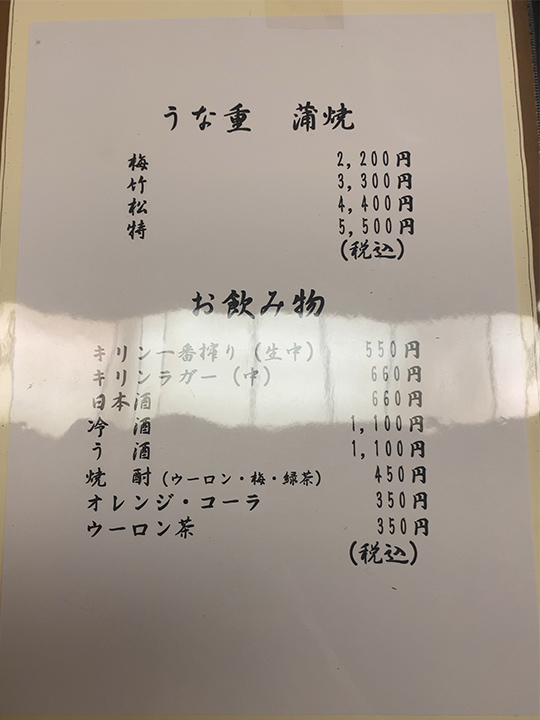 うな重　蒲焼
梅　2,200円
竹　3,300円
松　4,400円
特　5,500円
(税込)
お飲み物
キリン一番搾り（生中）　550円
キリンラガー（中）　660円
日本酒　660円
冷　酒　1,100円
う　酒　1,100円
焼　酎（ウーロン・梅・緑茶）　450円
オレンジ・コーラ　350円
ウーロン茶　350円
(税込)